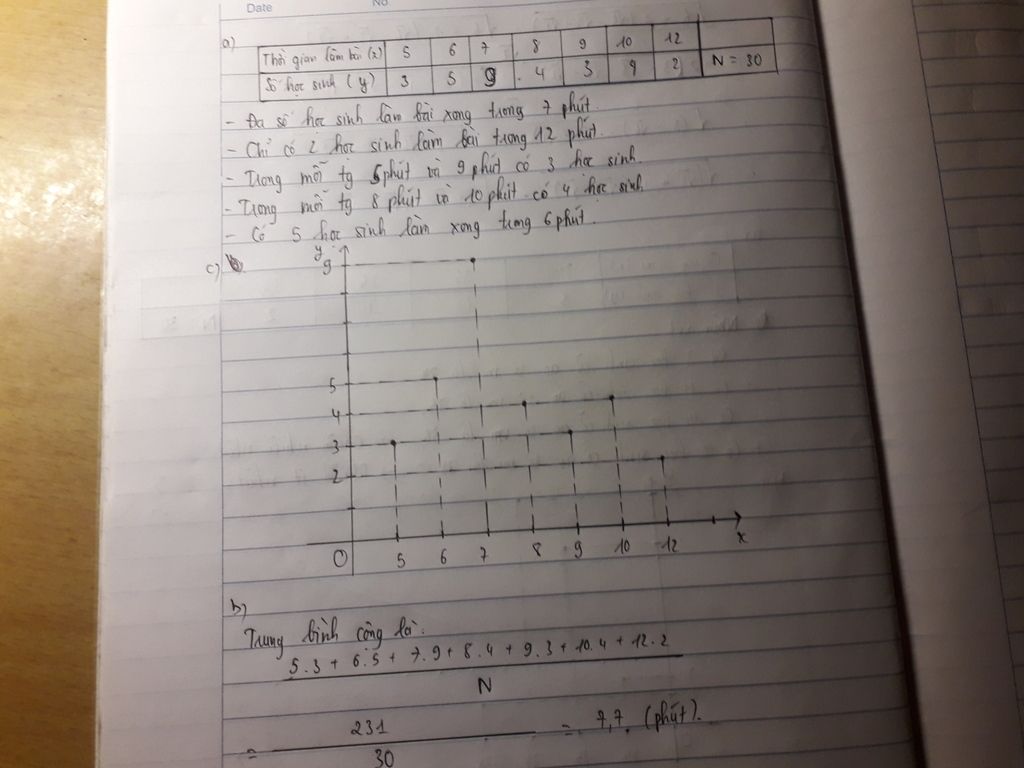 Date No
a)
Thời gian làm bài (x) 5 6 7 8 9 10 12
Số học sinh (y) 3 5 9 4 3 4 2 N = 30
- Đa số học sinh làm bài xong trong 7 phút.
- Chỉ có 2 học sinh làm bài trong 12 phút.
- Trong mỗi tg 5 phút và 9 phút có 3 học sinh.
- Trong mỗi tg 8 phút và 10 phút có 4 học sinh.
- Có 5 học sinh làm xong trong 6 phút.
c)
y
9
5
4
3
2
O 5 6 7 8 9 10 12 x
b)
Trung bình cộng là:
5.3 + 6.5 + 7.9 + 8.4 + 9.3 + 10.4 + 12.2
N
= 231 = 7,7 (phút).
30